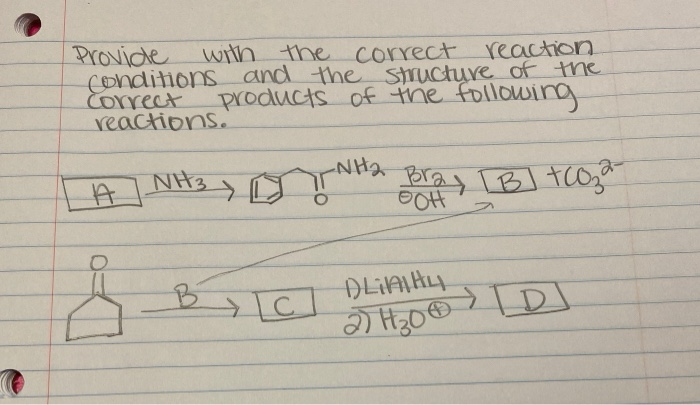 Provide with the correct reaction
conditions and the structure of the
correct products of the following
reactions.
A NH3 NH2 O Br2 ⊖OH B +CO3²⁻
O B C 1) LiAlH4 2) H3O⊕ D